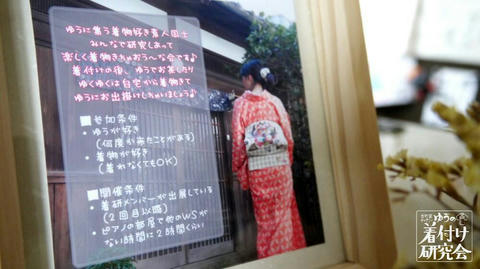 ゆうに集う着物好き素人同士
みんなで研究しあって
楽しく着物きちゃおう〜な会です♪
着付けの後、ゆうでお茶したり
ゆくゆくは自宅から着物きて
ゆうにお出掛けしちゃいましょう♪
■参加条件
・ゆうが好き
(何度か来たことがある)
・着物が好き
(着れなくてもOK)
■開催条件
・着研メンバーが出展している
(2回目以降)
・ピアノの部屋で他のWSが
ない時間に2時間くらい
ゆうの
着付け
研究会